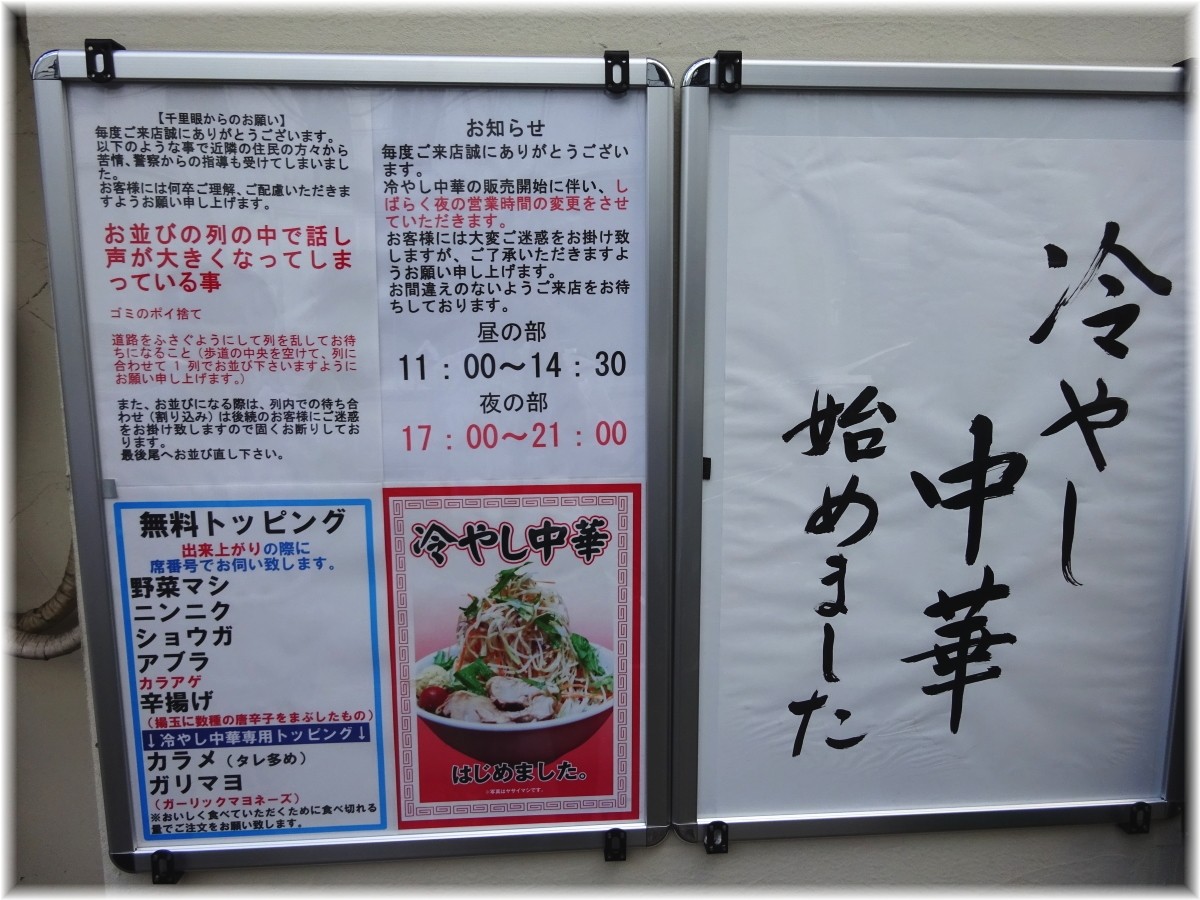 【千里眼からのお願い】
毎度ご来店誠にありがとうございます。
以下のような事で近隣の住民の方々から
苦情、警察からの指導も受けてしまいまし
た。
お客様には何卒ご理解、ご配慮いただきま
すようお願い申し上げます。
お並びの列の中で話し
声が大きくなってしま
っている事
ゴミのポイ捨て
道路をふさぐようにして列を乱してお待
ちになること（歩道の中央を空けて、列に
合わせて１列でお並び下さいますように
お願い申し上げます。）
また、お並びになる際は、列内での待ち合
わせ（割り込み）は後続のお客様にご迷惑
をお掛け致しますので固くお断りしてお
ります。
最後尾へお並び直し下さい。
お知らせ
毎度ご来店誠にありがとうござい
ます。
冷やし中華の販売開始に伴い、し
ばらく夜の営業時間の変更をさせ
ていただきます。
お客様には大変ご迷惑をお掛け致
しますが、ご了承いただきますよ
うお願い申し上げます。
お間違えのないようご来店をお待
ちしております。
昼の部
11：00～14：30
夜の部
17：00～21：00
無料トッピング
出来上がりの際に
席番号でお伺い致します。
野菜マシ
ニンニク
ショウガ
アブラ
カラアゲ
辛揚げ
（揚玉に数種の唐辛子をまぶしたもの）
↓冷やし中華専用トッピング↓
カラメ（タレ多め）
ガリマヨ
（ガーリックマヨネーズ）
※おいしく食べていただくために食べ切れる
量でご注文をお願い致します。
冷やし中華
はじめました。
※写真はヤサイマシです。
冷やし
中華
始めました